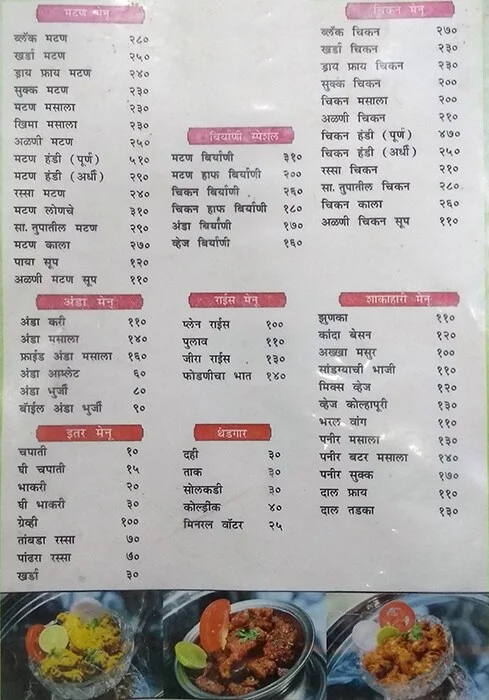 मटण मेनू
ब्लॅक मटण २८०
खर्डा मटण २५०
ड्राय फ्राय मटण २४०
सुक्क मटण २३०
मटण मसाला २३०
खिमा मसाला २३०
अळणी मटण २५०
मटण हंडी (पूर्ण) ५१०
मटण हंडी (अर्धी) २९०
रस्सा मटण २४०
मटण लोणचे ३१०
सा. तुपातील मटण २९०
मटण काला २७०
पाया सूप १२०
अळणी मटण सूप ११०
बिर्याणी स्पेशल
मटण बिर्याणी ३१०
मटण हाफ बिर्याणी २००
चिकन बिर्याणी २६०
चिकन हाफ बिर्याणी १८०
अंडा बिर्याणी १७०
व्हेज बिर्याणी १६०
चिकन मेनू
ब्लॅक चिकन २७०
खर्डा चिकन २३०
ड्राय फ्राय चिकन २३०
सुक्क चिकन २००
चिकन मसाला २००
अळणी चिकन २१०
चिकन हंडी (पूर्ण) ४७०
चिकन हंडी (अर्धी) २५०
रस्सा चिकन २१०
सा. तुपातील चिकन २८०
चिकन काला २६०
अळणी चिकन सूप ११०
अंडा मेनू
अंडा करी ११०
अंडा मसाला १४०
फ्राईड अंडा मसाला १६०
अंडा आम्लेट ६०
अंडा भुर्जी ८०
बॉईल अंडा भुर्जी ९०
राईस मेनू
प्लेन राईस १००
पुलाव ११०
जीरा राईस १३०
फोडणीचा भात १४०
शाकाहारी मेनू
झुणका ११०
कांदा बेसन १२०
अख्खा मसूर १००
सांडग्याची भाजी ११०
मिक्स व्हेज १२०
व्हेज कोल्हापूरी १३०
भरल वांग ११०
पनीर मसाला १३०
पनीर बटर मसाला १४०
पनीर सुक्क १७०
दाल फ्राय ११०
दाल तडका १३०
इतर मेनू
चपाती १०
घी चपाती १५
भाकरी २०
घी भाकरी ३०
ग्रेव्ही १००
तांबडा रस्सा ७०
पांढरा रस्सा ७०
खर्डा ३०
थंडगार
दही ३०
ताक ३०
सोलकडी ३०
कोल्ड्रींक ४०
मिनरल वॉटर २५